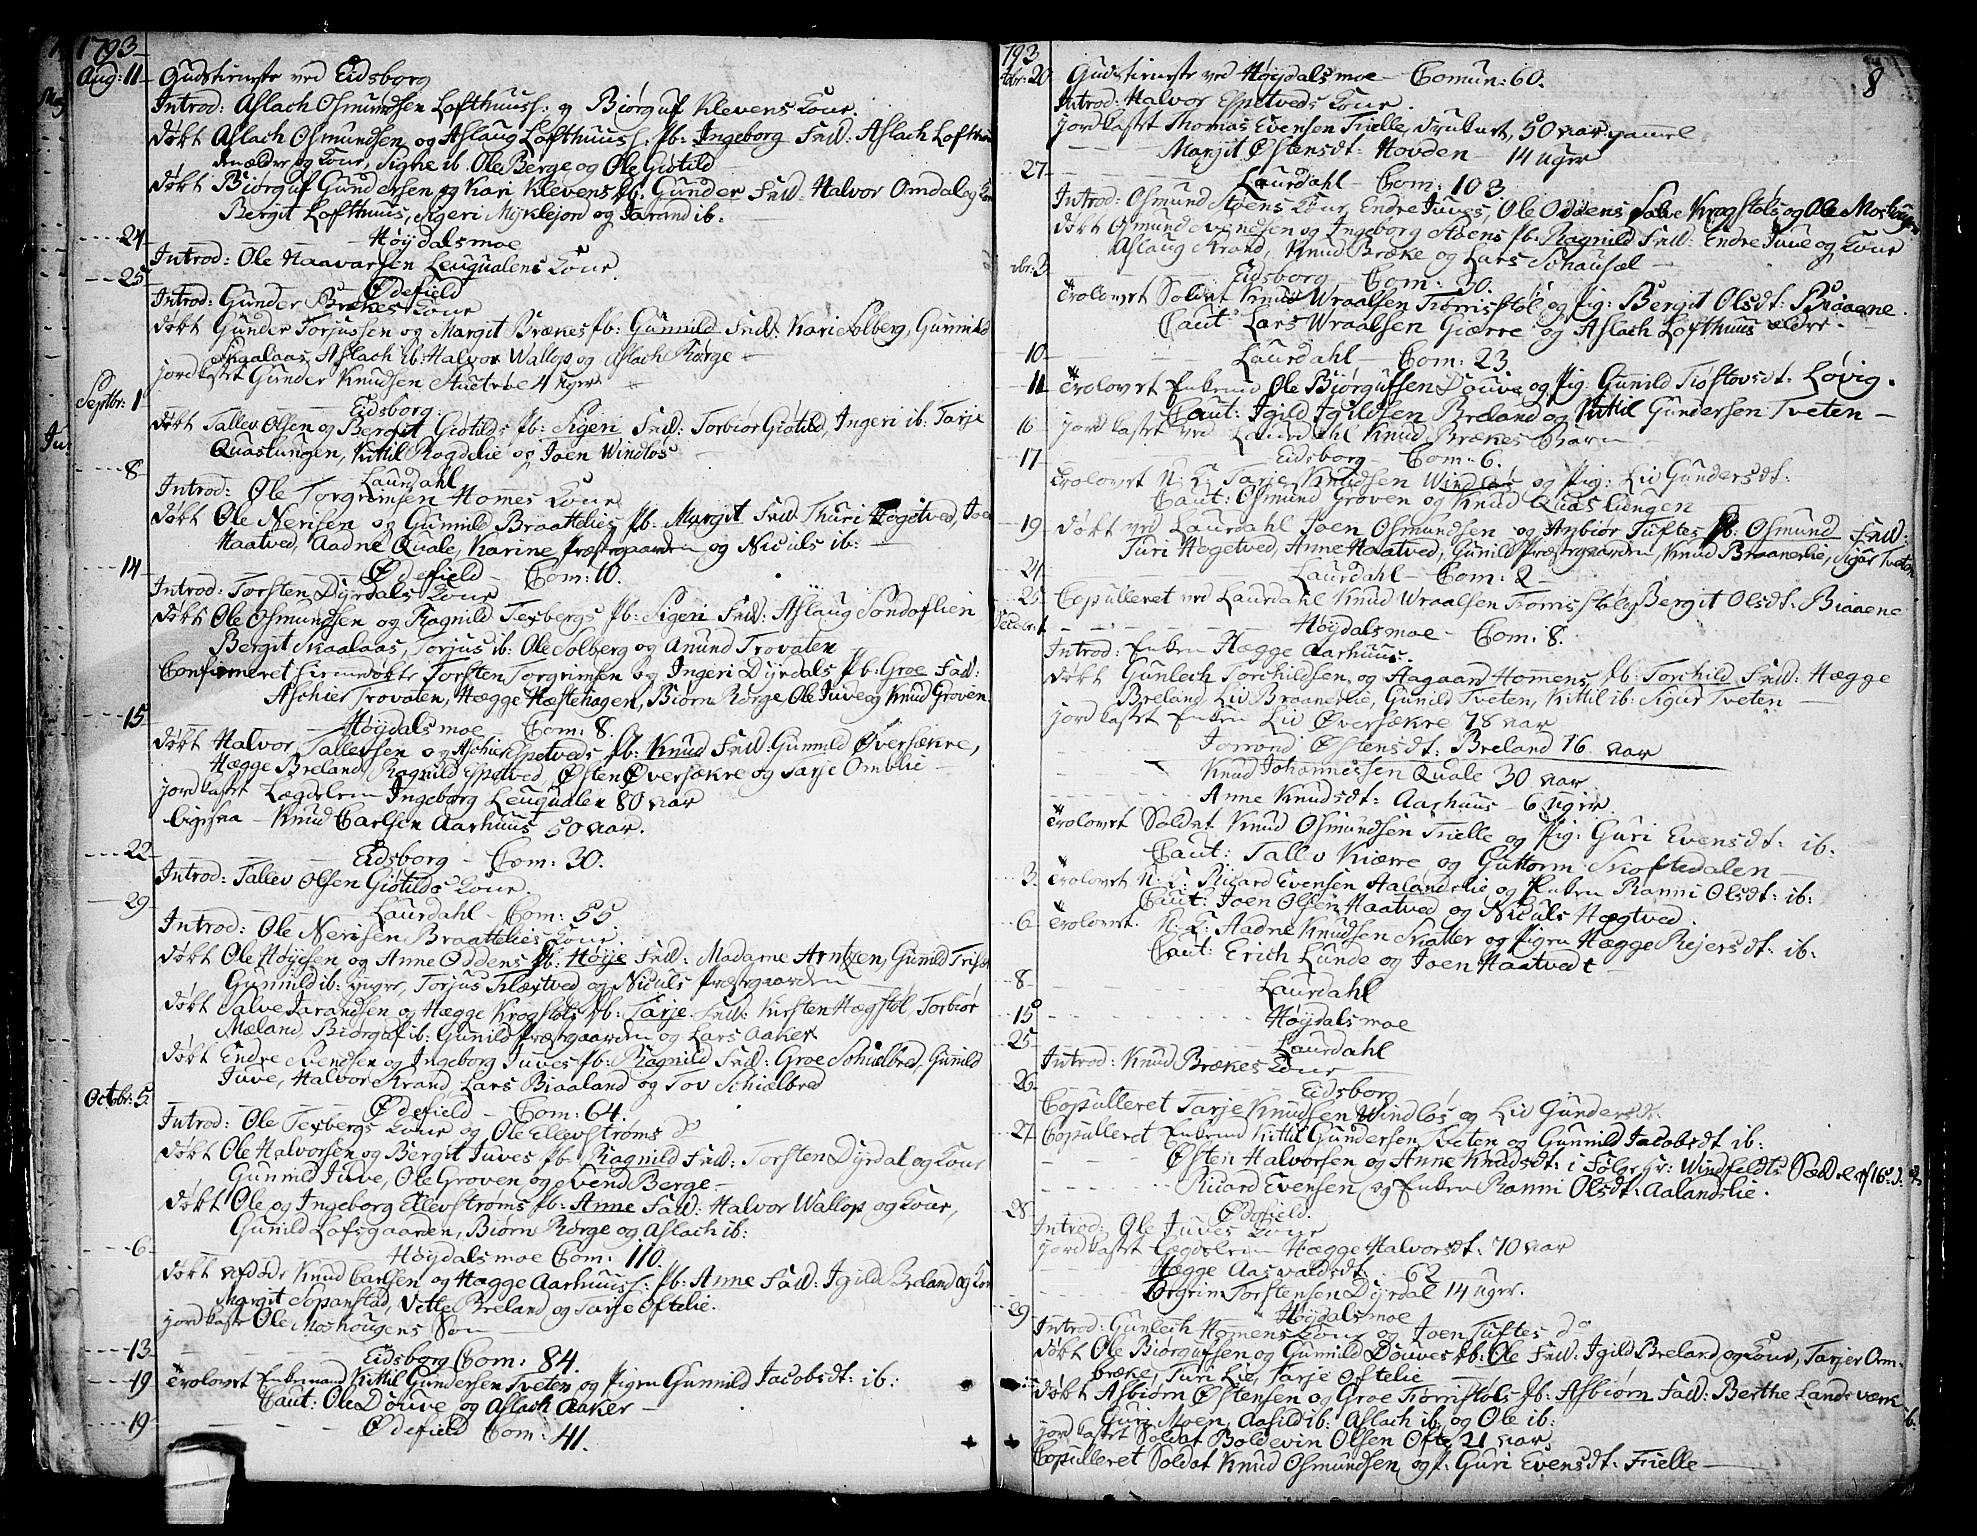 1793
Aug: 11 Gudstieneste ved Eidsborg
Introd: Aslach Osmundsen Lofthuus: og Biørguf Klevens Kone
døbt Aslach Osmundsen og Aslaug Lofthuus: fb: Ingeborg Fad: Aslach Lofthuus
ældre og Kone, Signe ib: Ole Berge og Ole Giøtild
døbt Biørguf Gundersen og Kari Klevens fb: Gunder Fad: Halvor Omdal og Kone
Bergit Lofthuus, Sigeri Myklejon og Jarand ib:
24 Høydalsmoe
Introd: Ole Haavarsen Leuqualens Kone
25 Ødefield
Introd: Gunder Brækes Kone
døbt Gunder Torjussen og Margit Brækes fb: Gunnild Fad: Kari Solberg, Gunnild
Skaalaas, Aslach ib: Halvor Wallop og Aslach Rørge
jordkastet Gunder Knudsen 4 uger
Septbr: 1 Eidsborg
døbt Tallev Olsen og Bergit Giøtilds fb: Sigeri Fad: Torbiør Giøtild, Ingeri ib: Tarje
Quastungen, Kittil Rogdelie og Joen Windlos
8 Laurdahl
Introd: Ole Torgrimsen Homes Kone
døbt Ole Nerisen og Gunnild Braattelies fb: Margit Fad: Thuri Høgetved, Joen
Haatved, Aadne Quale, Karine Præstgaarden og Niculs ib:
14 Ødefield Com: 10.
Introd: Torsten Dyrdals Kone
døbt Ole Osmundsen og Ragnild Texbergs fb: Sigeri Fad: Aslaug Sondoflien
Bergit Skaalaas, Torjus ib: Ole Solberg og Anund Trovaten
Confirmeret hiemmedøbte Torsten Torgrimsen og Ingeri Dyrdals fb: Groe Fad:
Aschier Trovaten, Hægge Hæstehagen, Biørn Rørge Ole Juve og Knud Groven
15 Høydalsmoe Com: 8.
døbt Halvor Tallefsen og Aschier Espetveds fb: Knud Fad: Gunnild Øversækre,
Hægge Breland Ragnild Espetved, Østen Øversækre og Tarje Omblie
jordkastet Lægdelem Ingeborg Leuqualen 80 aar
Knud Carlsen Aarhuus 50 aar.
22 Eidsborg Com: 30.
Introd: Tallev Olsen Giøtilds Kone.
29 Laurdahl Com: 55
Introd: Ole Nerisen Braattelies Kone.
døbt Ole Høyesen og Anne Oddens fb: Høye Fad: Madame Arntzen, Gunild
Gunnild ib: yngre, Torjus Flæxtved og Niculs Præstgaarden
døbt Salve Jarandsen og Hægge Krogstols fb: Tarje Fad: Kirsten Hægstøl Torbiør
Mæland, Biørgaf ib: Gunild Præstgaarden og Lars Aaker
døbt Endre Svendsen og Ingeborg Juves fb: Ragnild Fad: Groe Schielbred, Gunild
Juve, Halvor Strand Lars Biaaland og Tov Schielbred
Octbr: 5. Ødefield Com: 64.
Introd: Ole Texbergs Kone og Ole Ellevstrøms do
døbt Ole Halvorsen og Bergit Juves fb: Ragnild Fad: Torsten Dyrdal og Kone
Gunnild Juve, Ole Groven og Svend Berge
døbt Ole og Ingeborg Ellevstrøms fb: Anne Fad: Halvor Wallop og Kone,
Gunild Lofsgaarden, Biørn Rørge og Aslach ib:
6 Høydalsmoe Com: 110.
døbt Knud Carlsen og Hægge Aarhuus: fb: Anne Fad: Igild Breland og Kone
Margit Sopanstad, Vetle Breland og Tarje Oftelie.
jordkast Ole Moshougens Søn
13 Eidsborg Com: 84.
19 Trolovet Enkemand Kittil Gundersen Tveten og Pigen Gunnild Jacobsdt: ib:
Caut: Ole Douve og Aslach Aaker
19 Ødefield Com: 41.
793 8
20 Gudstieneste ved Høydalsmoe Comun: 60.
Introd: Halvor Espetveds Kone.
jordkastet Thomas Evensen Trielle, druknet, 50 aar gamel
Margit Østensdt: Hovden 14 uger
27 Laurdahl Com: 103
Introd: Osmund Støens Kone, Endre Juves, Ole Oddens Salve Krogstols og Ole Moshougens
døbt Osmund Svendsen og Ingeborg Støens fb: Ragnild Fad: Endre Juve og Kone
Aslaug Strand, Knud Bræke og Lars Schausæl
vbr: 3 Eidsborg Com: 30.
Trolovet Soldat Knud Wraalsen Tromsstol og Pig: Bergit Olsdt: Biaaene.
Caut: Lars Wraalsen Giærre og Aslach Lofthuus ældre.
10 Laurdahl Com: 23.
11 Trolovet Enkemd Ole Biørgufsen Douve og Pig: Gunild Tiostovsdt: Løvig.
Caut: Igild Igildsen Breland og Kittil Gundersen Tveten
16 jordkastet ved Laurdahl Knud Brækes Barn
17 Eidsborg Com: 6.
Trolovet N: K: Tarje Knudsen Windlos og Pig: Liv Gundersdt:
Caut: Osmund Groven og Knud Quaslungen
19 døbt ved Laurdahl Joen Osmundsen og Anbiør Tuftes fb: Osmund Fad:
Turi Høgetved, Anne Haatved, Gunild Præstgaarden, Knud Braanerlie, Sigur Tveten
24 Laurdahl Com: 2
25 Copulleret ved Laurdahl Knud Wraalsen Tromsstol og Bergit Olsdt: Biaaene
Decbr: 1 Høydalsmoe Com: 8.
Introd: Enken Hægge Aarhuus.
døbt Gunlech Torchildsen, og Aagaard Homens fb: Torchild Fad: Hægge
Breland Liv Braanerlie, Gunild Tveten, Kittil ib: Sigur Tveten
jordkastet Enken Liv Øversækre 78 aar
Jorrond Østensdt: Breland 16 aar
Knud Johannessen Quale 30 aar
Anne Knudsdt: Aarhuus 6 uger.
Trolovet Soldat Knud Osmundsen Trielle og Pig: Guri Evensdt: ib:
Caut: Tallev Kiærre og Guttorm Skoftedalen
3. Trolovet N: K: Ricard Evensen Aalandslie og Enken Ranni Olsdt: ib:
Caut: Joen Olsen Haatved og Niculs Hægtved.
6 Trolovet N: K: Aadne Knudsen Skatter og Pigen Hægge Reiersdt: ib:
Caut: Erich Lunde og Joen Haatvedt
8 Laurdahl
15 Høydalsmoe
25 Laurdahl
Introd: Knud Brækes Kone
26 Eidsborg
Copulleret Tarje Knudsen Windlos og Liv Gundersdt.
27 Copulleret Enkemd Kittil Gundersen Tveten og Gunnild Jacobsdt ib:
Østen Halvorsen og Anne Knudsdt: i Følge Hr: Windfeldts Sædel af 16
Ricard Evensen og Enken Ranni Olsdt: Aalandslie.
28 Ødefield.
Introd: Ole Juves Kone
jordkastet Lægdelem Hægge Halvorsdt: 70 aar
Hægge Aasvaldsdt: 62
Torgrim Torstensen Dyrdal 14 uger.
29 Høydalsmoe
Introd: Gunlech Homens Kone og Joen Tuftes do
døbt Ole Biørgufsen og Gunnild Douves fb: Ole Fad: Igild Breland og Kone, Tarjer Om-
bræke, Turi Lie, Tarje Oftelie
døbt Asbiørn Østensen og Groe Tromstols fb: Asbiørn Fad: Berthe Landsværk
Guri Moen, Aasild ib: Aslach ib: og Ole ib:
jordkastet Soldat Boldevin Olsen Ofte 21 aar
Copulleret Soldat Knud Osmundsen og P: Guri Evensdt: Trielle